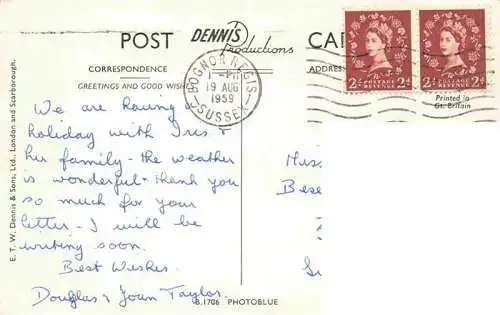 POST DENNIS Productions CAR
CORRESPONDENCE
ADDRESS
GREETINGS AND GOOD WISHES
BOGNOR REGIS
19 AUG
1959
SUSSEX
2d POSTAGE REVENUE 2d
2d POSTAGE REVENUE 2d
Printed in
Gt. Britain
We are having
holiday with Iris &
her family - the weather
is wonderful - thank you
so much for your
letter - I will be
writing soon.
Best Wishes
Douglas & Joan Taylor.
Miss
Bese
E. T. W. Dennis & Sons, Ltd., London and Scarborough.
B.1706 PHOTOBLUE